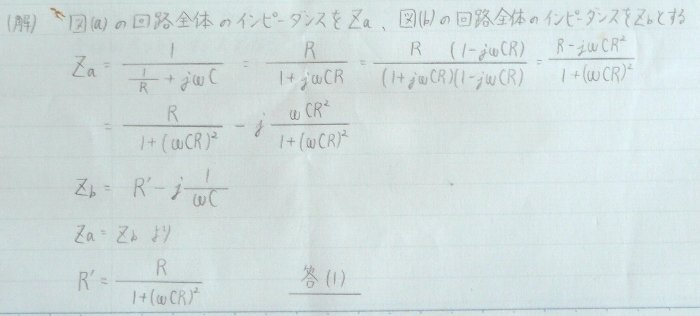 (解) 図(a)の回路全体のインピーダンスをZa、図(b)の回路全体のインピーダンスをZbとする
Za = 1/(1/R + jωC) = R/(1+jωCR) = R(1-jωCR)/((1+jωCR)(1-jωCR)) = (R-jωCR²)/(1+(ωCR)²)
= R/(1+(ωCR)²) - j ωCR²/(1+(ωCR)²)
Zb = R′ - j 1/(ωC)
Za = Zb より
R′ = R/(1+(ωCR)²) 答(1)